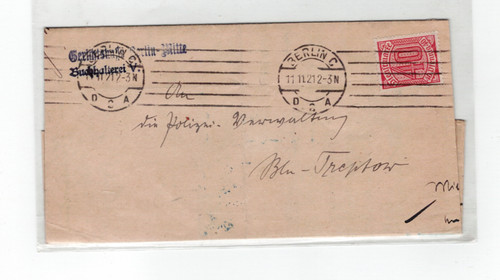 Gerichtskasse Berlin-Mitte
Buchhalterei
BERLIN C.
11.11.21 2-3 N
D 2 A
BERLIN C.
11.11.21 2-3 N
D 2 A
40
An
die Polizei-Verwaltung
Bln-Treptow